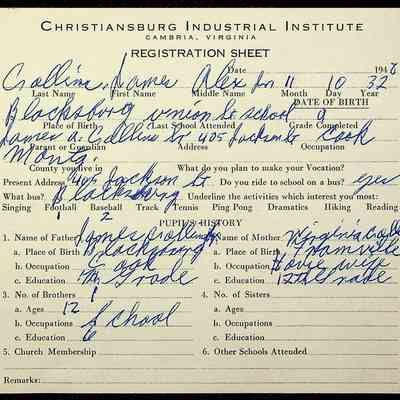 CHRISTIANSBURG INDUSTRIAL INSTITUTE
CAMBRIA, VIRGINIA
REGISTRATION SHEET
Date 194
Collins, James Alex Jr. 11 10 32
Last Name First Name Middle Name Month Day Year
DATE OF BIRTH
Blacksburg school 9
Place of Birth Last School Attended Grade Completed
James A. Collins Sr 405 Jackson St Cook
Parent or Guardian Address Occupation
Montg.
County you live in What do you plan to make your Vocation?
Present Address 405 Jackson St. Do you ride to school on a bus? yes
What bus? Blacksburg Underline the activities which interest you most:
Singing Football Baseball Track Tennis Ping Pong Dramatics Hiking Reading
1 2
PUPIL'S HISTORY
1. Name of Father James Collins 2. Name of Mother Virginia
a. Place of Birth Blacksburg a. Place of Birth
b. Occupation Cook b. Occupation House wife
c. Education 7th Grade c. Education 12th Grade
3. No. of Brothers 1 4. No. of Sisters
a. Ages 12 a. Ages
b. Occupations School b. Occupations
c. Education 6 c. Education
5. Church Membership 6. Other Schools Attended
Remarks: